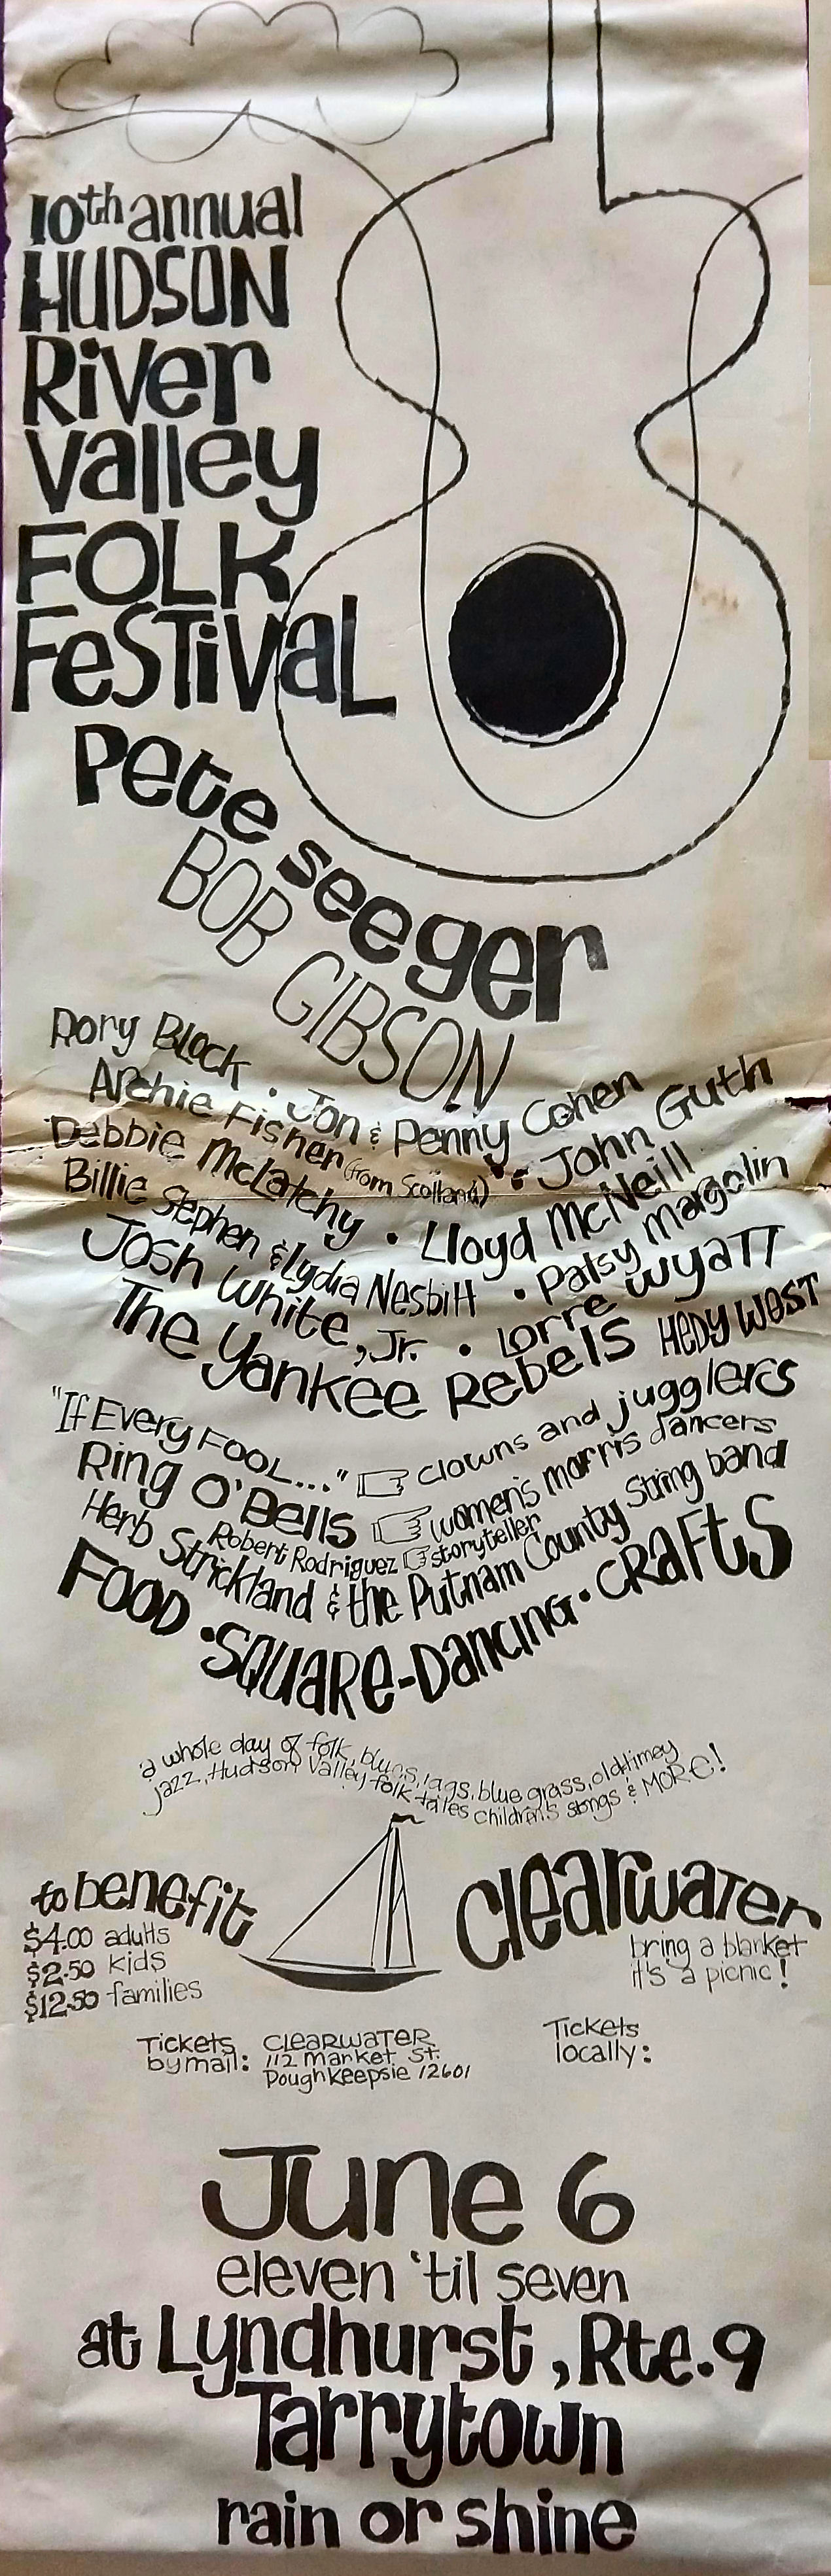 10th annual
HUDSON
River
valley
FOLK
FeSTivaL
Pete seeger
BOB GIBSON
Rory Block · Jon & Penny Cohen
Archie Fisher (from Scotland) · John Guth
Debbie McLatchy · Lloyd McNeill
Billie Stephen & Lydia Nesbitt · Patsy Margolin
Josh White, Jr. · Lorre Wyatt
The Yankee Rebels Hedy West
"If Every Fool..." clowns and jugglers
Ring O'Bells women's morris dancers
Robert Rodriguez storyteller
Herb Strickland & the Putnam County String band
FOOD · SQUARE-DANCING · CRAFTS
a whole day of folk, blues, rags, blue grass, old timey
jazz, Hudson Valley folk tales children's songs & MORE!
to benefit Clearwater
$4.00 adults
$2.50 kids
$12.50 families
bring a blanket
it's a picnic!
Tickets
by mail:
CLEARWATER
112 market St.
Poughkeepsie 12601
Tickets
locally:
June 6
eleven 'til seven
at Lyndhurst, Rte. 9
Tarrytown
rain or shine